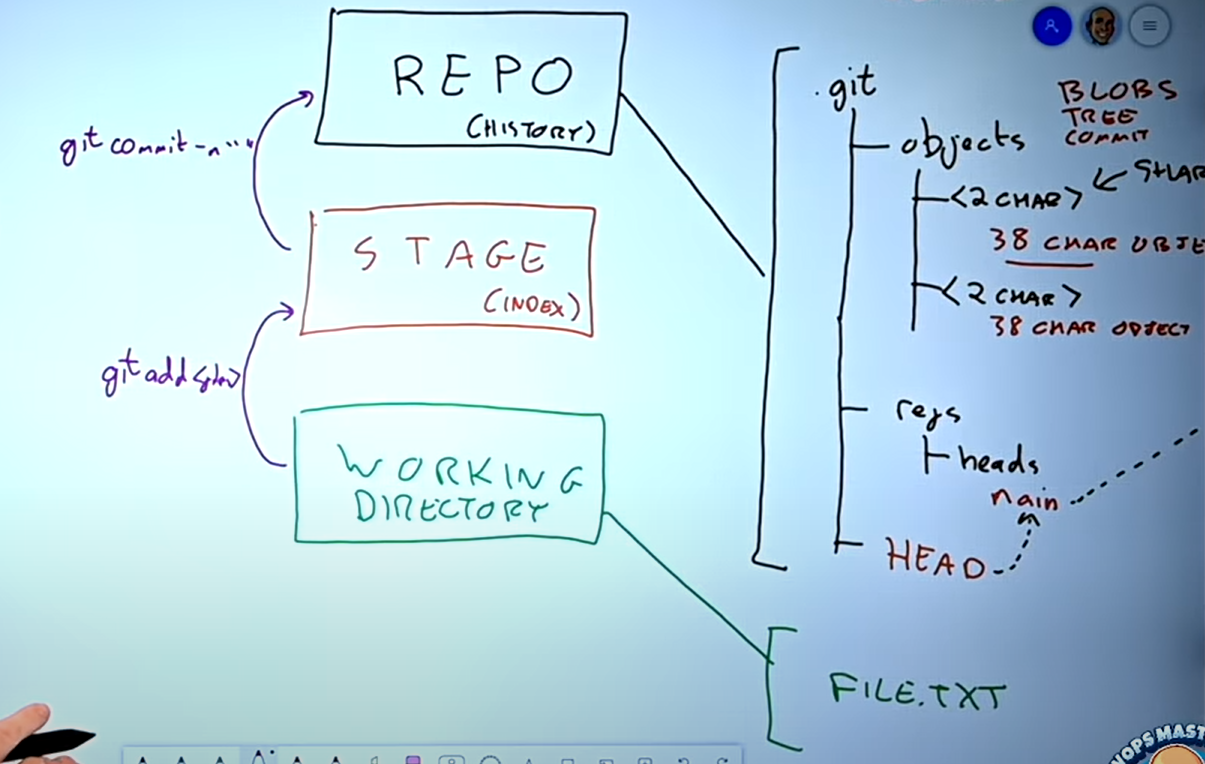 REPO
(HISTORY)
git commit -m "..."
STAGE
(INDEX)
git add
WORKING
DIRECTORY
.git
BLOBS
TREE
COMMIT
objects
<2 CHAR>
38 CHAR OBJE
<2 CHAR>
38 CHAR OBJECT
refs
heads
main
HEAD
FILE.TXT
OPS MAST